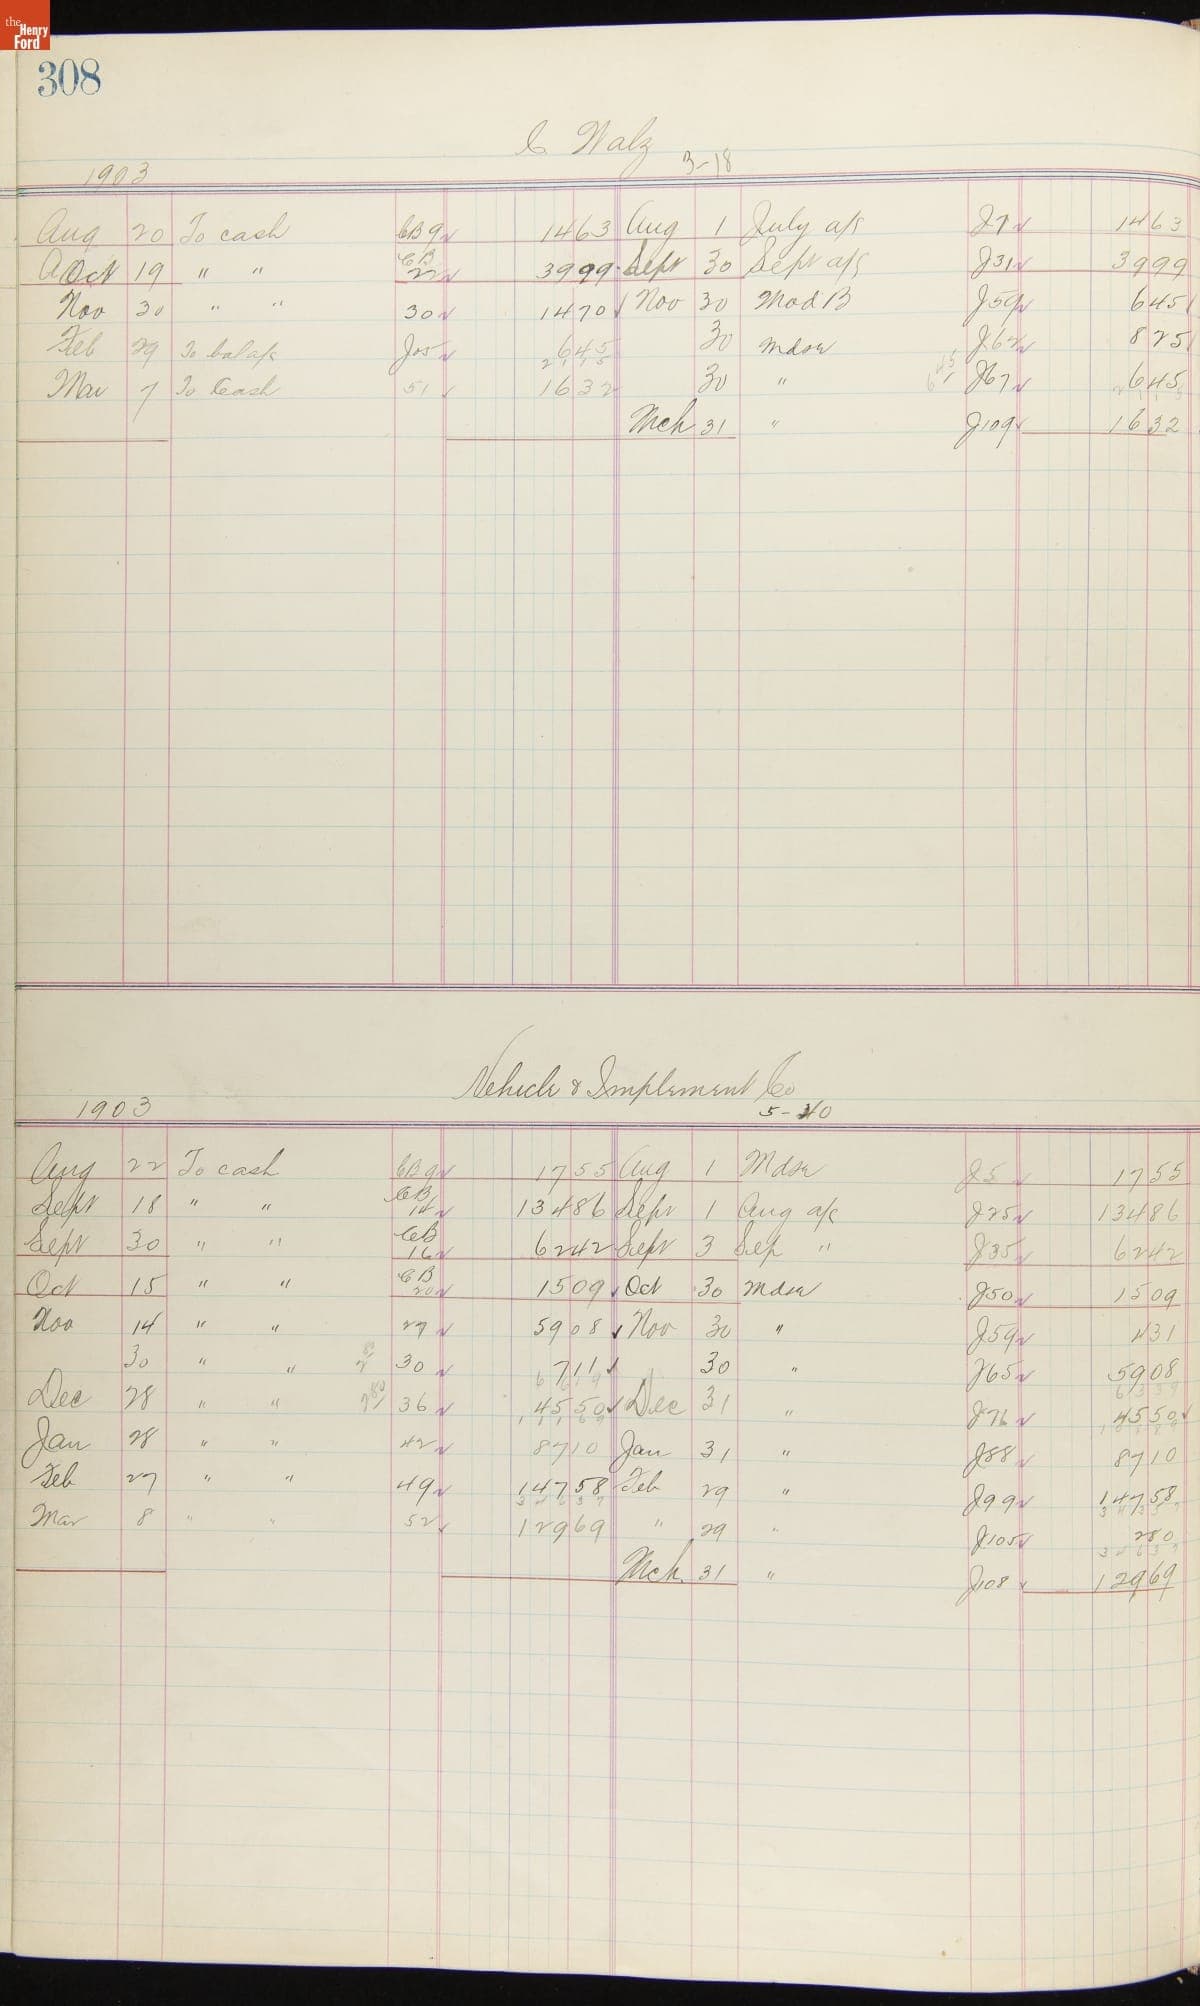 the Henry Ford
308
C Walz
3-18
1903
Aug 20 To cash CB 9 1463 Aug 1 July a/c J7 1463
Oct 19 " " CB 22 3999 Sept 30 Sept a/c J31 3999
Nov 30 " " 30 1470 Nov 30 Mod B J59 645
Feb 29 To bal a/c J105 645 30 Mdse J62 825
2115
Mar 7 To Cash 51 1632 30 " 645 J67 645
2115
Mch 31 " J109 1632
Vehicle & Implement Co
5-40
1903
Aug 22 To cash CB 9 1755 Aug 1 Mdse J5 1755
Sept 18 " " CB 14 13486 Sept 1 Aug a/c J25 13486
Sept 30 " " CB 16 6242 Sept 3 Sep " J35 6242
Oct 15 " " CB 20 1509 Oct 30 Mdse J50 1509
Nov 14 " " 27 5908 Nov 30 " J59 431
30 " " 30 711 30 " J65 5908
6619 6339
Dec 28 " " 280 36 4550 Dec 31 " J76 4550
11169
Jan 28 " " 42 8710 Jan 31 " J88 8710
Feb 27 " " 49 14758 Feb 29 " J99 14758
34637
Mar 8 " " 52 12969 " 29 " J105 280
34637
Mch. 31 " J108 12969